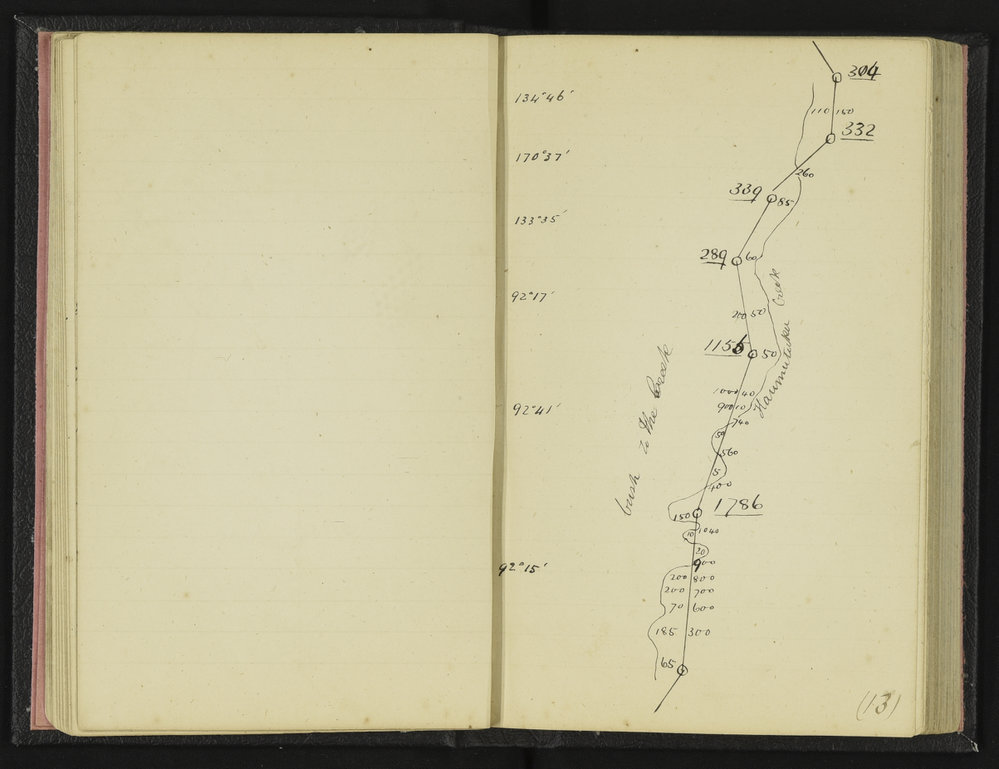 304
134°46′
110 150
332
170°37′
260
339 85
133°35′
289 60
92°17′
200 50
1156 50
1000 40
92°41′
900 10
740
50
560
5
400
bush to the Creek
Creek
150 1786
10 1040
20
92°15′
900
200 800
200 700
70 600
185 300
65
(13)